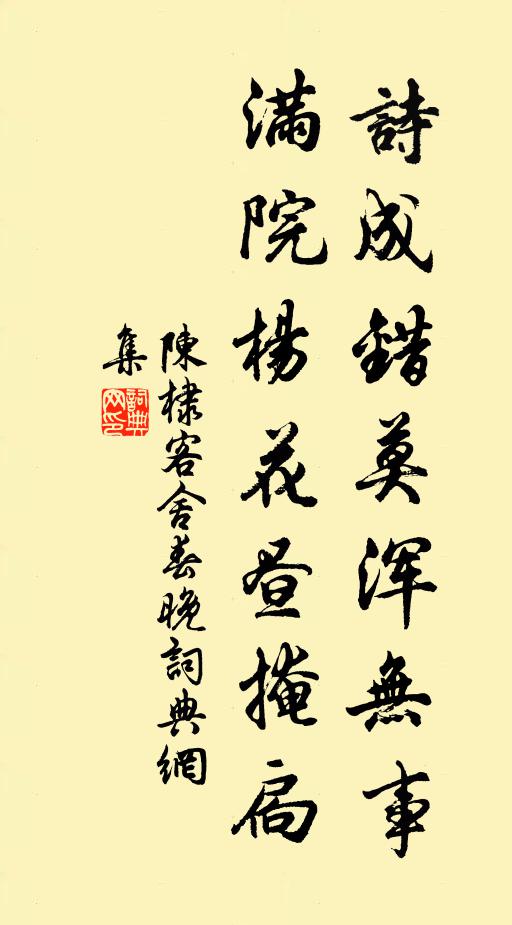 詩成錯莫浑無事
滿院楊花昼掩扃
陳棣客舍春晚詞典網
集
詞典
网印